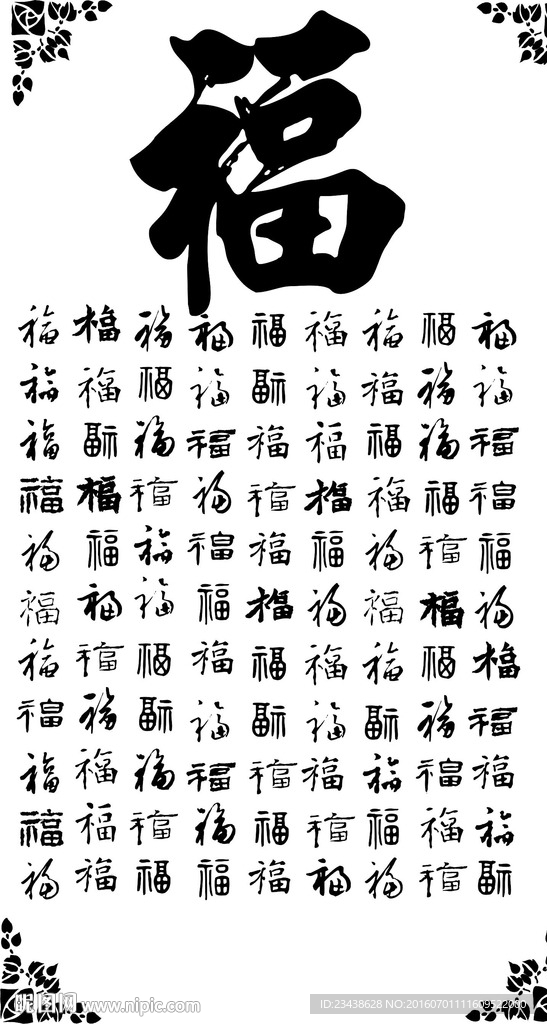 福
福福福福福福福福福
福福福福福福福福福
福福福福福福福福福
福福福福福福福福福
福福福福福福福福福
福福福福福福福福福
福福福福福福福福福
福福福福福福福福福
福福福福福福福福福
福福福福福福福福福
福福福福福福福福福
昵图网 www.nipic.com
ID:23438628 NO:20160701111609522000